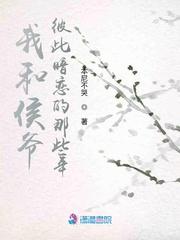 我和侯爷
彼此暗恋的那些年
本尼不哭 ◎ 著
潇湘书院